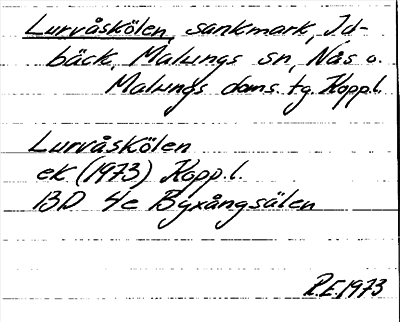 Lurvåskölen, sankmark, Id-
bäck, Malungs sn, Nås o.
Malungs doms. tg. Kopp.l.
Lurvåskölen
ek (1973) Kopp.l.
13D 4e Byxångsälen
R.E. 1973